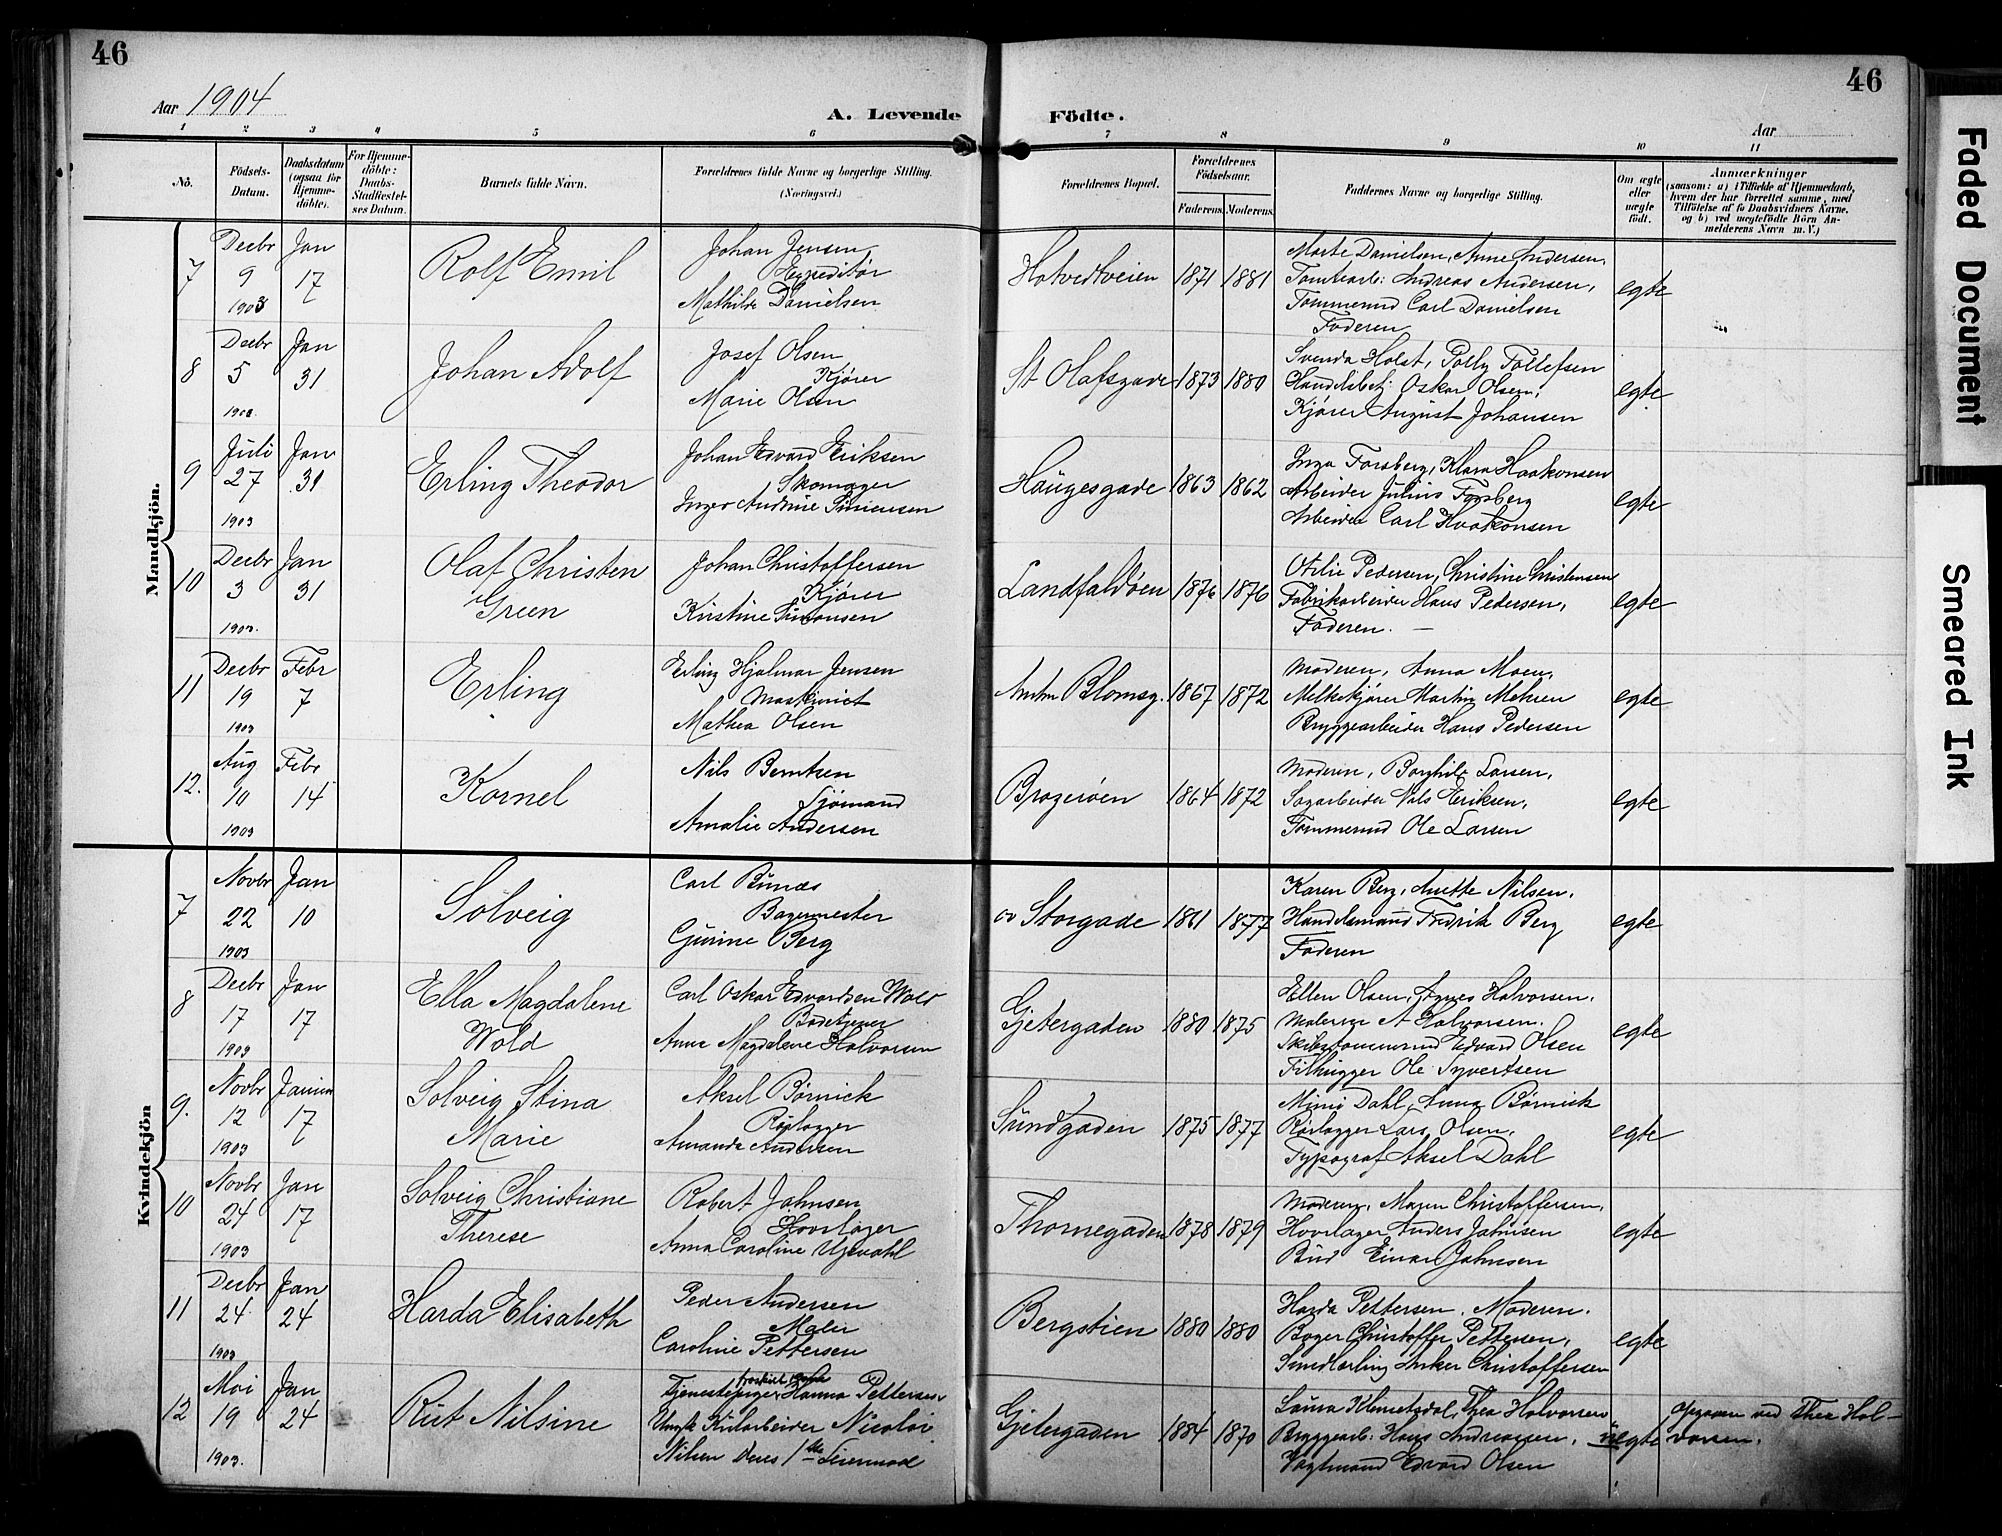 46
46
Aar 1904
A. Levende
Födte.
Aar
1 2 3 4 5 6 7 8 9 10 11
No.
Födsels-Datum.
Daabsdatum (ogsaa for Hjemme-döbte).
For Hjemme-döbte: Daabs-Stadfæstel-ses Datum.
Barnets fulde Navn.
Forældrenes fulde Navne og borgerlige Stilling. (Næringsvei.)
Forældrenes Bopæl.
Forældrenes Födselsaar.
Faderens. Moderens.
Faddernes Navne og borgerlige Stilling.
Om ægte eller uægte födt.
Anmærkninger
(saasom: a) i Tilfælde af Hjemmedaab,
hvem der har forrettet samme, med
Tilföielse af to Daabsvidners Navne.
og b) ved uægtefödte Börn An-
melderens Navn m. V.)
Mandkjön.
7 Decbr 9 1903 Jan 17
Rolf Emil
Johan Jensen
Expeditør
Mathilde Danielsen
Hotvedtveien 1871 1881
Marte Danielsen, Anne Andersen,
Tomtearb: Andreas Andersen,
Tømmermd Carl Danielsen
Faderen
egte
8 Decbr 5 Jan 31
Johan Adolf
Josef Olsen
Kjører
Marie Olsen
St Olafsgade 1873 1880
Svenda Holst, Polly Tollefsen
Handelsbetj: Oskar Olsen,
Kjører August Johansen
egte
9 Juli 27 1903 Jan 31
Erling Theodor
Johan Edvard Eriksen
Skomager
Inger Andrine Simensen
Haugesgade 1863 1862
Inga Forsberg, Klara Haakonsen
Arbeider Julius Forsberg
Arbeider Carl Haakonsen
egte
10 Decbr 3 1903. Jan 31
Olaf Christen
Green
Johan Christoffersen
Kjører
Kristine Simonsen
Landfaldøen 1876 1876
Otilie Pedersen, Christine Christensen
Fabrikarbeider Hans Pedersen,
Faderen. —
egte
11 Decbr 19 1903 Febr 7
Erling
Erling Hjalmar Jensen
Maskinist
Mathea Olsen
Amtm Blomsg. 1867 1872
Moderen, Anna Moen,
Melkekjører Martin Mehren
Bryggearbeider Hans Pedersen
egte
12. Aug 10 1903 Febr 14
Kornel
Nils Berntsen
Sjømand
Amalie Andersen
Bragerøen 1864 1872
Moderen, Borghild Larsen,
Sagarbeider Nils Eriksen,
Tømmermd Ole Larsen
egte
Kvindekjön
7 Novbr 22 1903 Jan 10
Solveig
Carl Bunæs
Bagermester
Gurine Berg
øv Storgade 1861 1877
Karen Berg, Anette Nilsen,
Handelsmand Fredrik Berg
Faderen
egte
8 Decbr 17 1903 Jan 17
Ella Magdalene
Wold
Carl Oskar Edvardsen Wold
Badetjener
Anna Magdalene Halvorsen
Gjetergaden 1880 1875
Ellen Olsen, Agnes Halvorsen,
Malerem A Halvorsen.
Skibstømmermd Edvard Olsen
Filhugger Ole Syvertsen
egte
9. Novbr 12 1903 17
Solveig Stina
Marie
Aksel Børnick
Rørlægger
Amanda Andersen
Sundgaden 1875 1877
Mimi Dahl, Anna Børnick
Rørlægger Lars Olsen,
Typograf Aksel Dahl
egte
10 Novbr 24 1903 Jan 17
Solveig Christiane
Therese
Robert Jahnsen
Hovslager
Anna Caroline Ugjevahl
Thornegaden 1878 1879
Moderen, Maren Christoffersen,
Hovslager Anders Jahnsen
Bud Einar Jahnsen
egte
11 Decbr 24 1903 Jan 24
Harda Elisabeth
Peder Andersen
Maler
Caroline Pettersen
Bergstien 1880 1880
Harda Pettersen, Moderen.
Bager Christoffer Pettersen,
Smedlærling Anker Christoffersen
egte
12 Mai 19 1903. Jan 24
Rut Nilsine
Tjenestepige Hanna Pettersen
Ungk Kularbeider Nicolai
Nilsen Deres 1ste Leiermaal
Gjetergaden 1884 1870
Laura Klemetsdal, Thea Halvorsen
Bryggearb: Hans Andreassen,
Vagtmand Edvard Olsen
uegte
Opgaven ved Thea Hal-
vorsen.
Faded Document
Smeared Ink